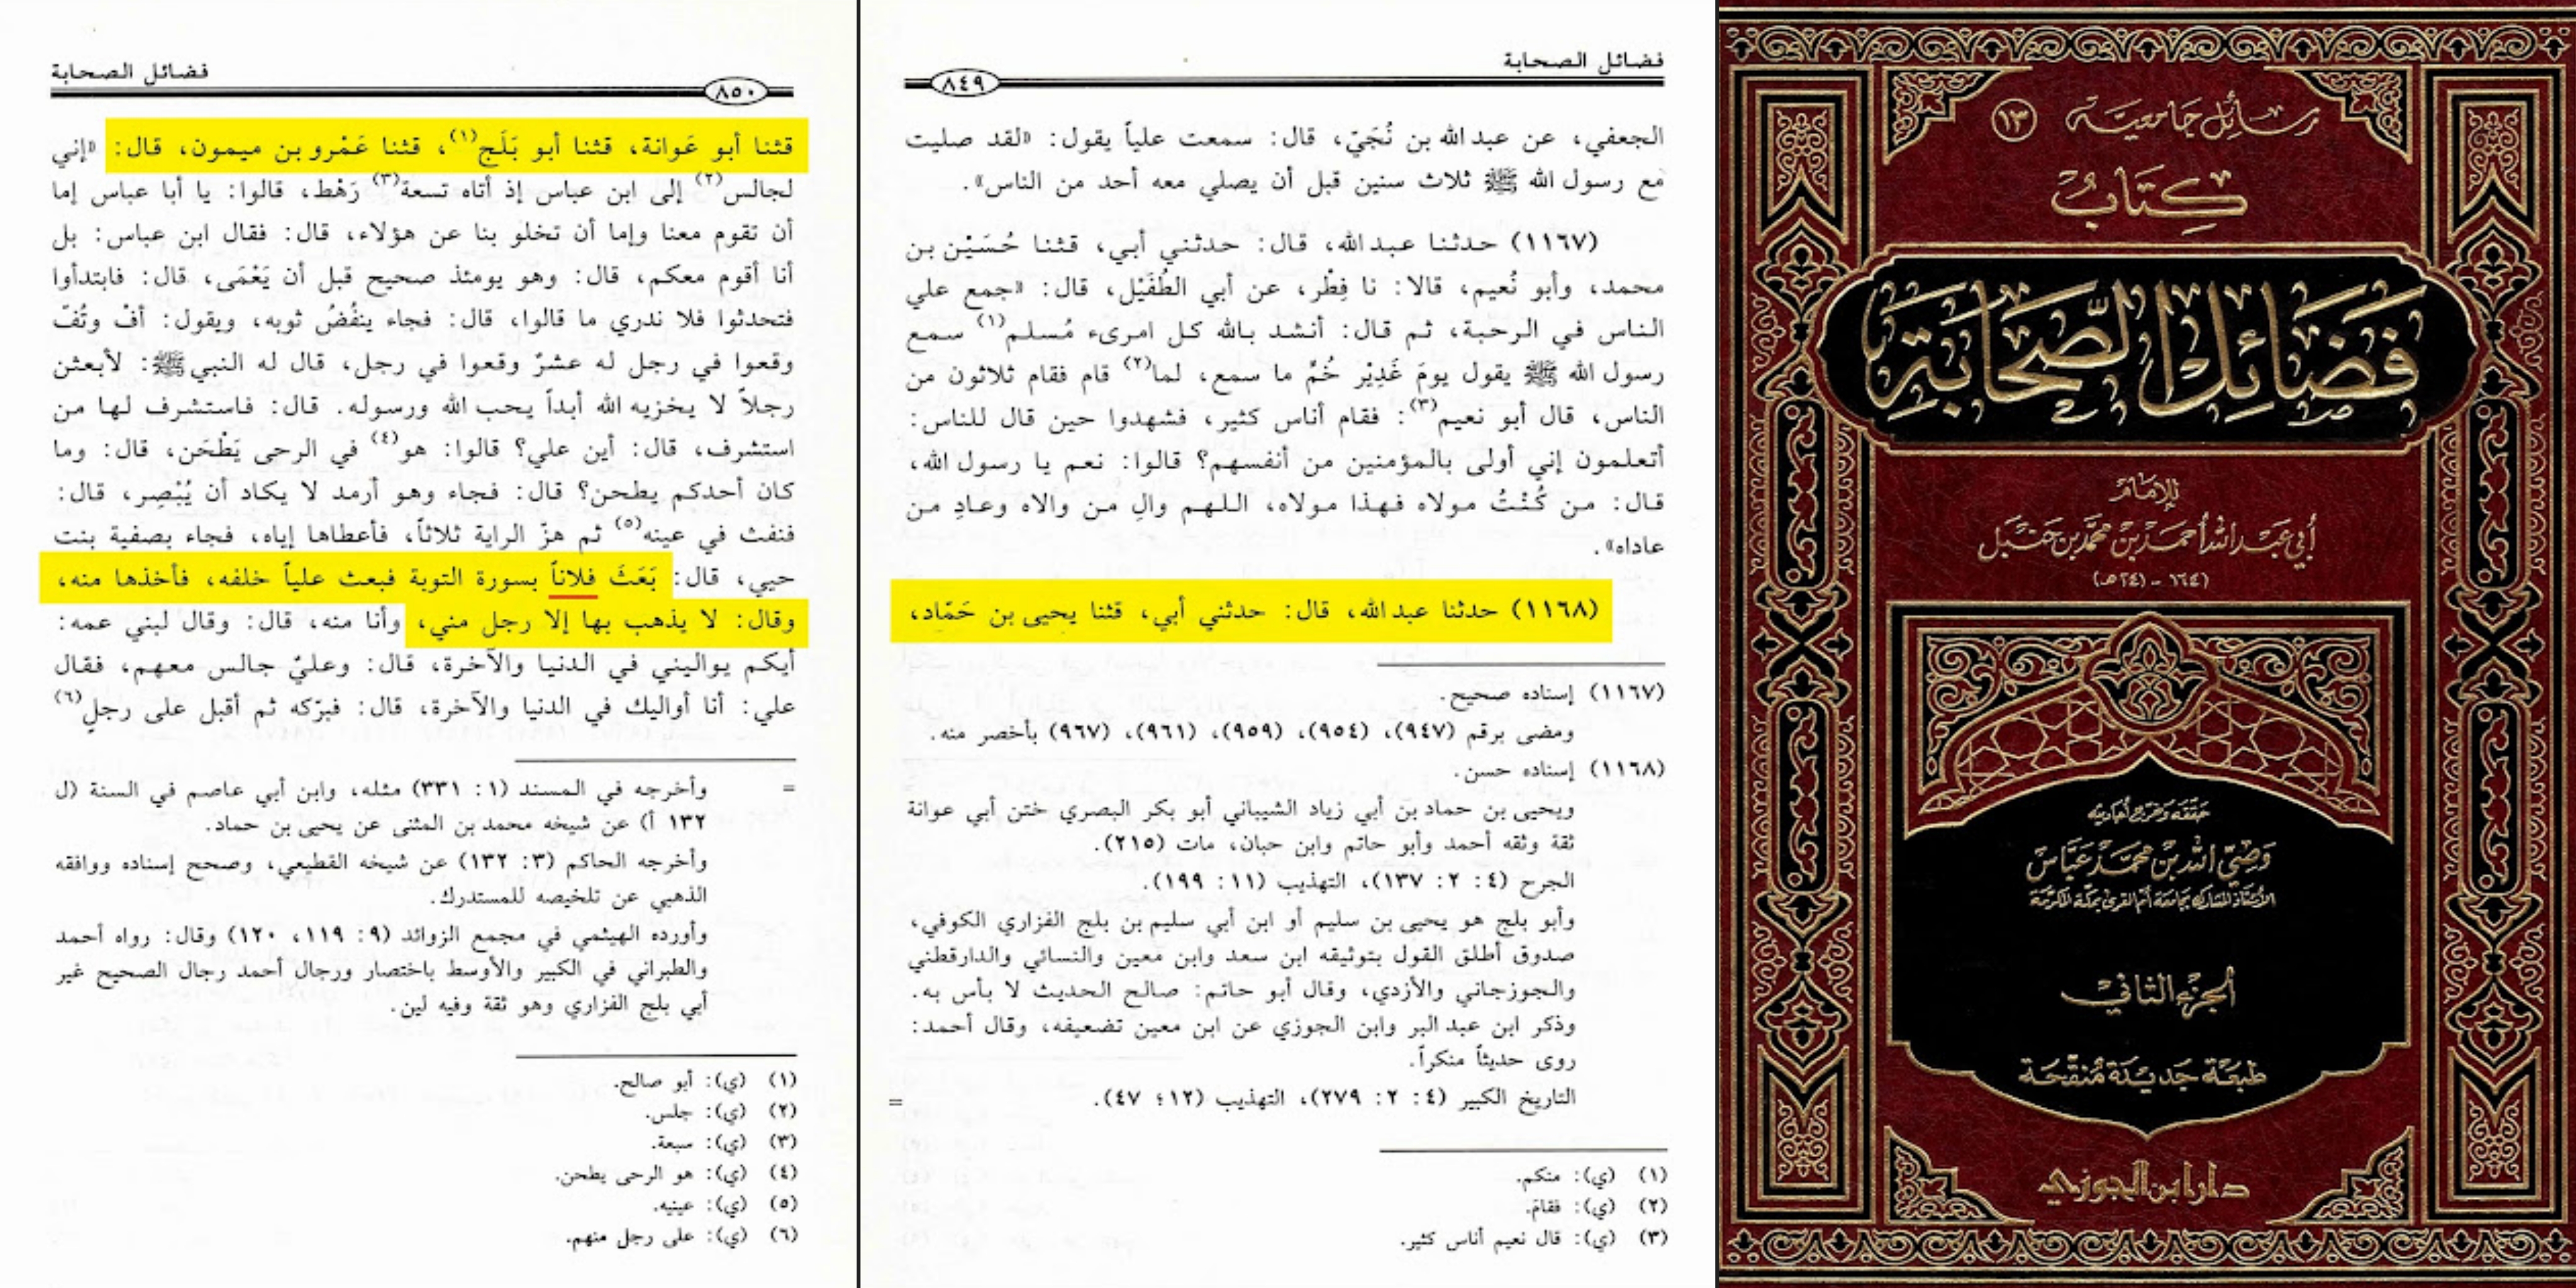 رسائل جامعية ١٣
كتاب
فضائل الصحابة
للإمام
أبي عبد الله أحمد بن محمد بن حنبل
(١٦٤ - ٢٤١هـ)
حققه وخرج أحاديثه
وصي الله بن محمد عباس
الأستاذ المشارك بجامعة أم القرى بمكة المكرمة
الجزء الثاني
طبعة جديدة منقحة
دار ابن الجوزي
فضائل الصحابة
٨٤٩
الجعفي، عن عبد الله بن نُجَيّ، قال: سمعت علياً يقول: «لقد صليت
مع رسول الله ﷺ ثلاث سنين قبل أن يصلي معه أحد من الناس».
(١١٦٧) حدثنا عبد الله، قال: حدثني أبي، قثنا حُسَيْن بن
محمد، وأبو نُعيم، قالا: نا فِطْر، عن أبي الطُفَيْل، قال: «جمع علي
الناس في الرحبة، ثم قال: أنشد بالله كل امرىء مُسلم(١) سمع
رسول الله ﷺ يقول يومَ غَدِيْر خُمّ ما سمع، لما(٢) قام فقام ثلاثون من
الناس، قال أبو نعيم(٣): فقام أناس كثير، فشهدوا حين قال للناس:
أتعلمون إني أولى بالمؤمنين من أنفسهم؟ قالوا: نعم يا رسول الله،
قال: من كُنْتُ مولاه فهذا مولاه، اللهم والِ من والاه وعادِ من
عاداه».
(١١٦٨) حدثنا عبد الله، قال: حدثني أبي، قثنا يحيى بن حَمّاد،
(١١٦٧) إسناده صحيح.
ومضى برقم (٩٤٧)، (٩٥٤)، (٩٥٩)، (٩٦١)، (٩٦٧) بأخصر منه.
(١١٦٨) إسناده حسن.
ويحيى بن حماد بن أبي زياد الشيباني أبو بكر البصري ختن أبي عوانة
ثقة وثقه أحمد وأبو حاتم وابن حبان، مات (٢١٥).
الجرح (٤: ٢: ١٣٧)، التهذيب (١١: ١٩٩).
وأبو بلج هو يحيى بن سليم أو ابن أبي سليم بن بلج الفزاري الكوفي،
صدوق أطلق القول بتوثيقه ابن سعد وابن معين والنسائي والدارقطني
والجوزجاني والأزدي، وقال أبو حاتم: صالح الحديث لا بأس به.
وذكر ابن عبد البر وابن الجوزي عن ابن معين تضعيفه، وقال أحمد:
روى حديثاً منكراً.
التاريخ الكبير (٤: ٢: ٢٧٩)، التهذيب (١٢؛ ٤٧).
=
(١) (ي): منكم.
(٢) (ي): فقامَ.
(٣) (ي): قال نعيم أناس كثير.
فضائل الصحابة
٨٥٠
قثنا أبو عَوانة، قثنا أبو بَلَج(١)، قثنا عَمْرو بن ميمون، قال: «إني
لجالس(٢) إلى ابن عباس إذ أتاه تسعة(٣) رَهْط، قالوا: يا أبا عباس إما
أن تقوم معنا وإما أن تخلو بنا عن هؤلاء، قال: فقال ابن عباس: بل
أنا أقوم معكم، قال: وهو يومئذ صحيح قبل أن يَعْمَى، قال: فابتدأوا
فتحدثوا فلا ندري ما قالوا، قال: فجاء ينفُضُ ثوبه، ويقول: أفْ وتُفّ
وقعوا في رجل له عشرٌ وقعوا في رجل، قال له النبي ﷺ: لأبعثن
رجلاً لا يخزيه الله أبداً يحب الله ورسوله. قال: فاستشرف لها من
استشرف، قال: أين علي؟ قالوا: هو(٤) في الرحى يَطْحَن، قال: وما
كان أحدكم يطحن؟ قال: فجاء وهو أرمد لا يكاد أن يُبْصِر، قال:
فنفث في عينه(٥) ثم هزّ الراية ثلاثاً، فأعطاها إياه، فجاء بصفية بنت
حيي، قال: بَعَثَ فلاناً بسورة التوبة فبعث علياً خلفه، فأخذها منه،
وقال: لا يذهب بها إلا رجل مني، وأنا منه، قال: وقال لبني عمه:
أيكم يواليني في الدنيا والآخرة، قال: وعليٌ جالس معهم، فقال
علي: أنا أواليك في الدنيا والآخرة، قال: فبرّكه ثم أقبل على رجلٍ(٦)
= وأخرجه في المسند (١: ٣٣١) مثله، وابن أبي عاصم في السنة (ل
١٣٢ أ) عن شيخه محمد بن المثنى عن يحيى بن حماد.
وأخرجه الحاكم (٣: ١٣٢) عن شيخه القطيعي، وصحح إسناده ووافقه
الذهبي عن تلخيصه للمستدرك.
وأورده الهيثمي في مجمع الزوائد (٩: ١١٩، ١٢٠) وقال: رواه أحمد
والطبراني في الكبير والأوسط باختصار ورجال أحمد رجال الصحيح غير
أبي بلج الفزاري وهو ثقة وفيه لين.
(١) (ي): أبو صالح.
(٢) (ي): جلس.
(٣) (ي): سبعة.
(٤) (ي): هو الرحى يطحن.
(٥) (ي): عينيه.
(٦) (ي): على رجل منهم.